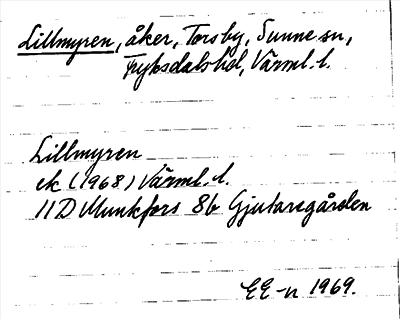 Lillmyren, åker, Torsby, Sunne sn,
Fryksdals hd, Värml. l.
Lillmyren
ek (1968) Värml. l.
11 D Munkfors 8b Gjutaregården
EE-n 1969.